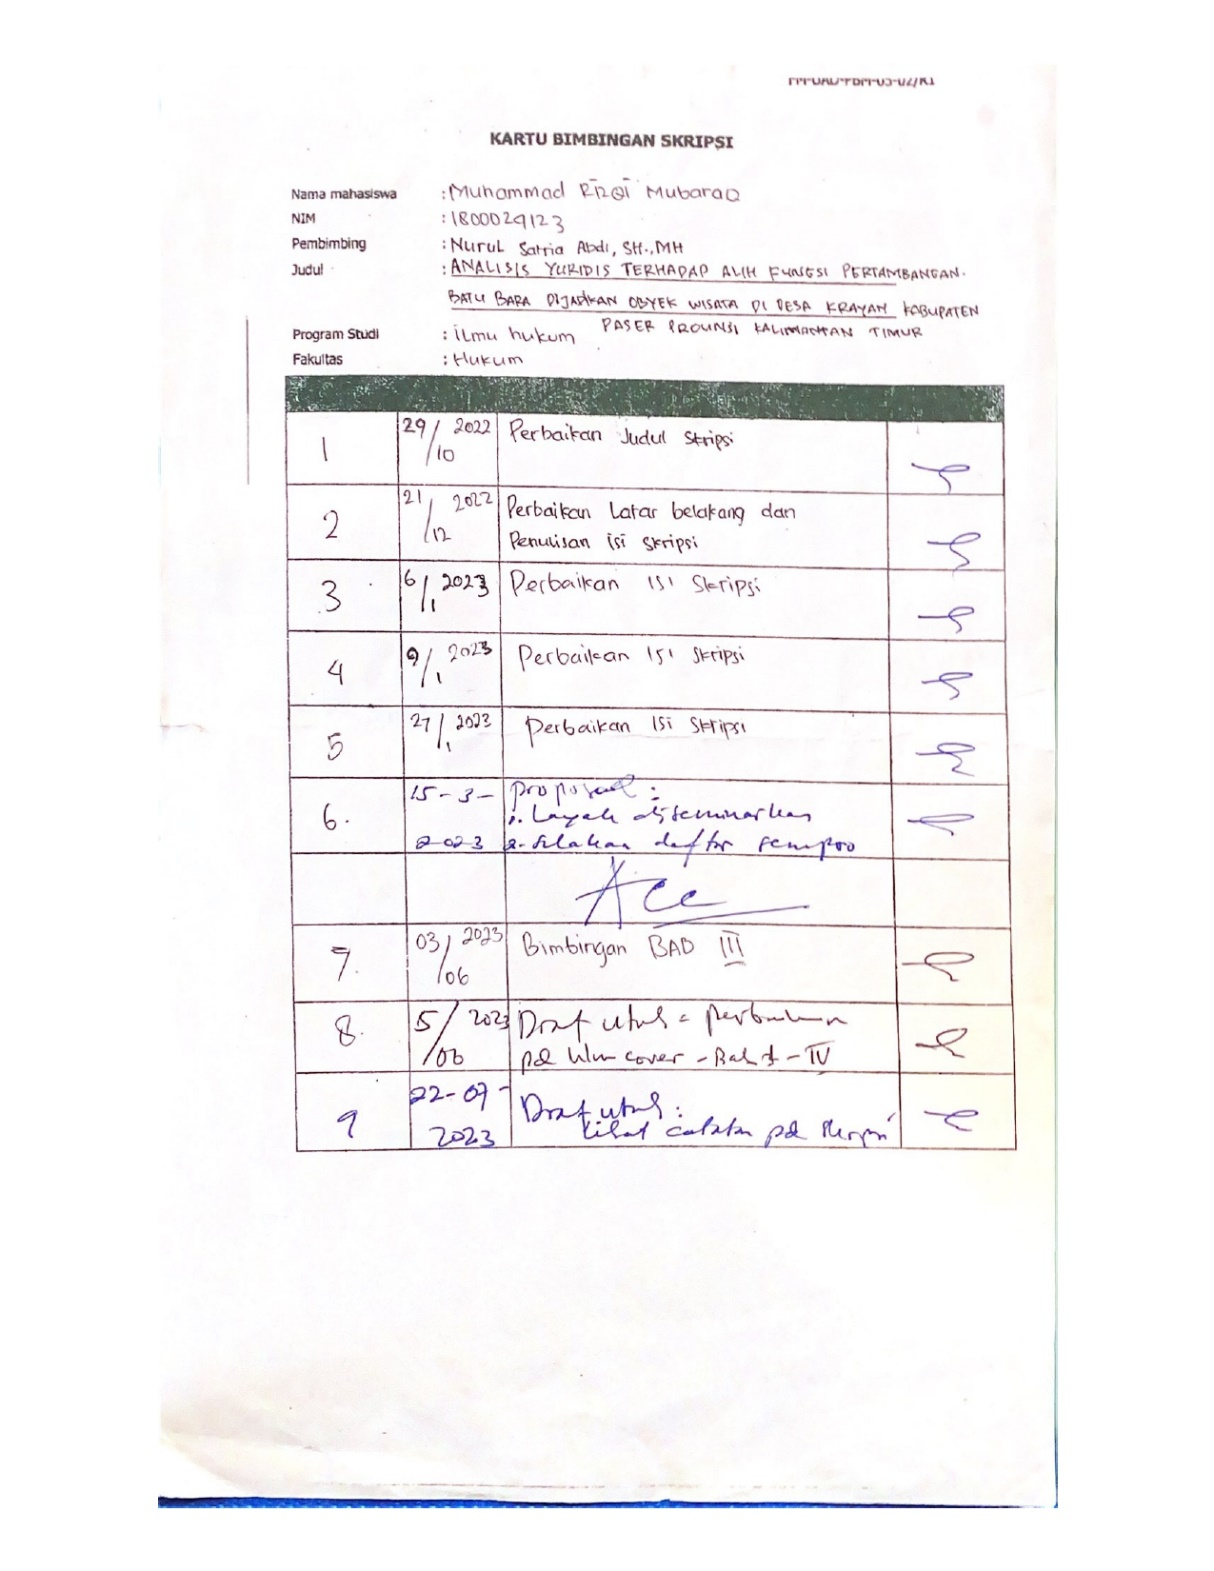 KARTU BIMBINGAN SKRIPSI
Nama mahasiswa : Muhammad Rizqi Mubaraq
NIM : 1800029123
Pembimbing : Nurul Satria Abdi, SH., MH
Judul : ANALISIS YURIDIS TERHADAP ALIH FUNGSI PERTAMBANGAN
BATU BARA DIJADIKAN OBYEK WISATA DI DESA KRAYAN KABUPATEN
PASER PROVINSI KALIMANTAN TIMUR
Program Studi : ilmu hukum
Fakultas : Hukum
1 29/10 2022 Perbaikan Judul Skripsi
2 21/12 2022 Perbaikan Latar belakang dan
Penulisan isi skripsi
3 6/1 2023 Perbaikan Isi Skripsi
4 9/1 2023 Perbaikan Isi Skripsi
5 27/1 2023 Perbaikan Isi Skripsi
6. 15-3- Proposal :
1. Layak diseminarkan
2023 2. Silahkan daftar sempro
Acc
7. 03/06 2023 Bimbingan BAB III
8. 5/06 2023 Draf utuh =
pd cover - Bab I - IV
9 22-07- Draf utuh :
2023 Lihat catatan pd